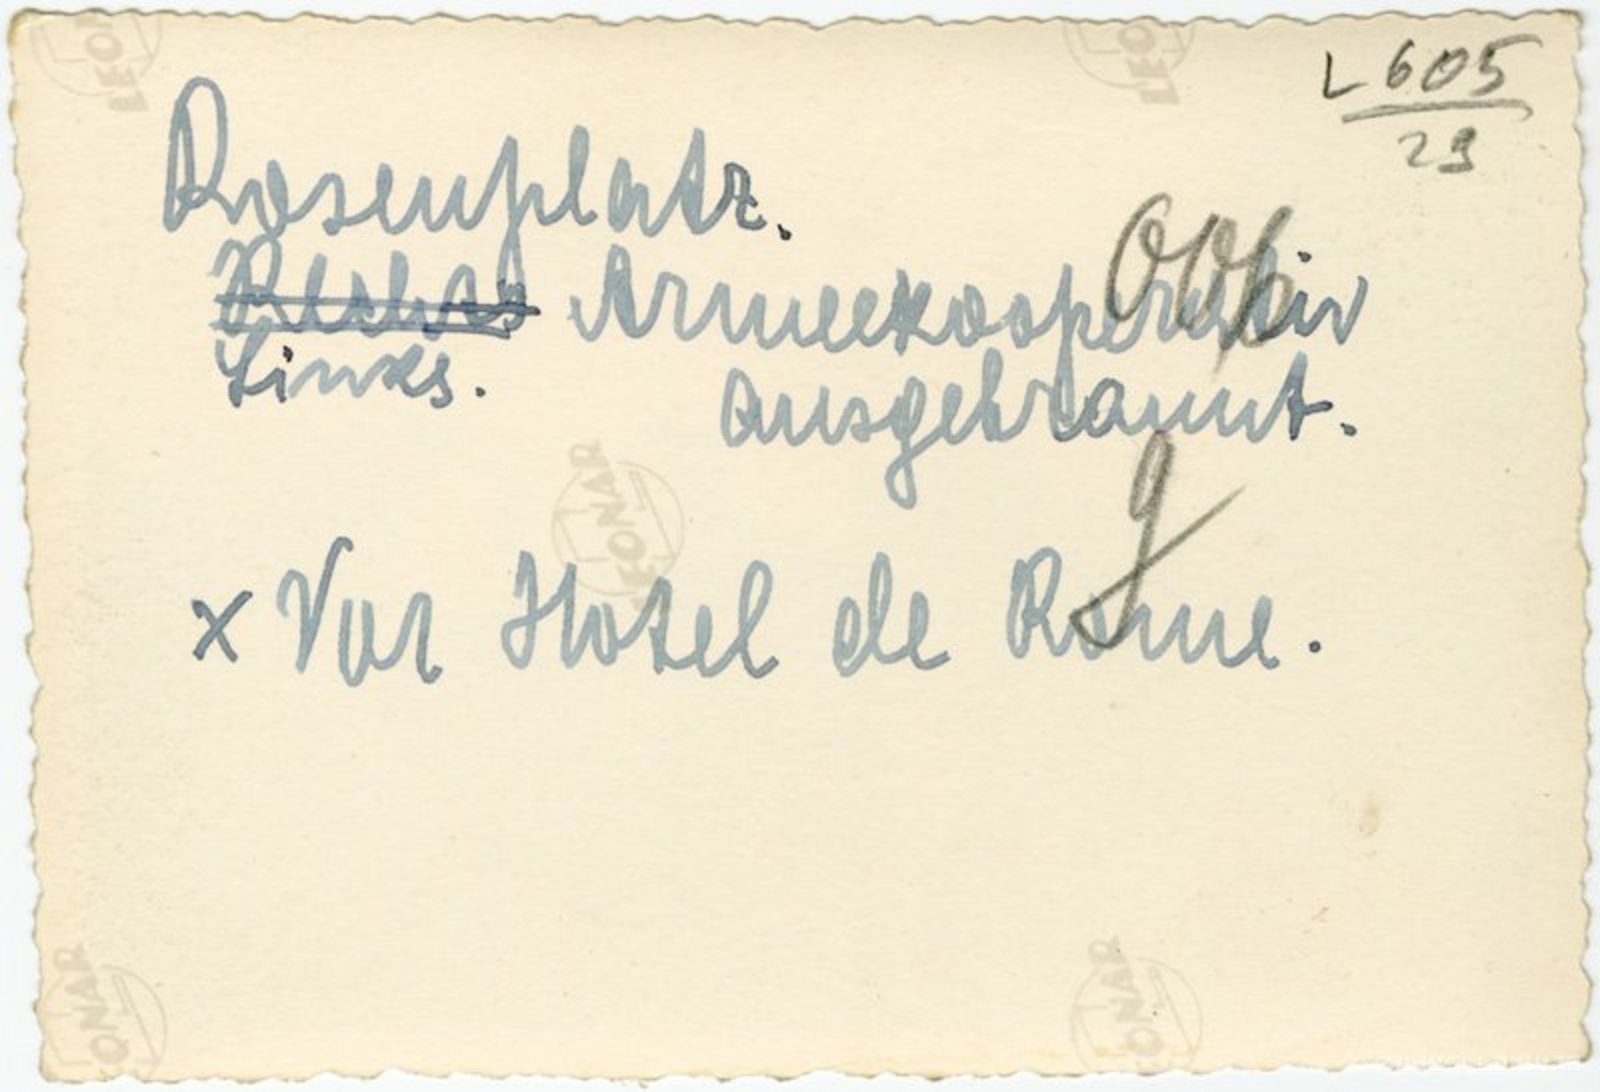 L 605
29
Rosenplatz.
Rechts Armeekooperativ
Links. ausgebrannt.
x Vor Hotel de Rome.
LEONAR
LEONAR
LEONAR
LEONAR
LEONAR